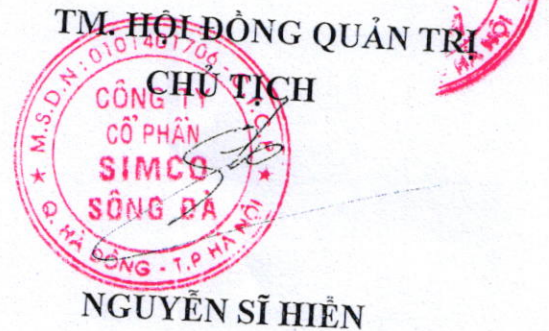 TM. HỘI ĐỒNG QUẢN TRỊ
CHỦ TỊCH
M.S.D.N: 0101401706 - C.T.C.P
CÔNG TY
CỔ PHẦN
SIMCO
SÔNG ĐÀ
Q. HÀ ĐÔNG - T.P HÀ NỘI
HÀ NỘI
NGUYỄN SĨ HIỂN